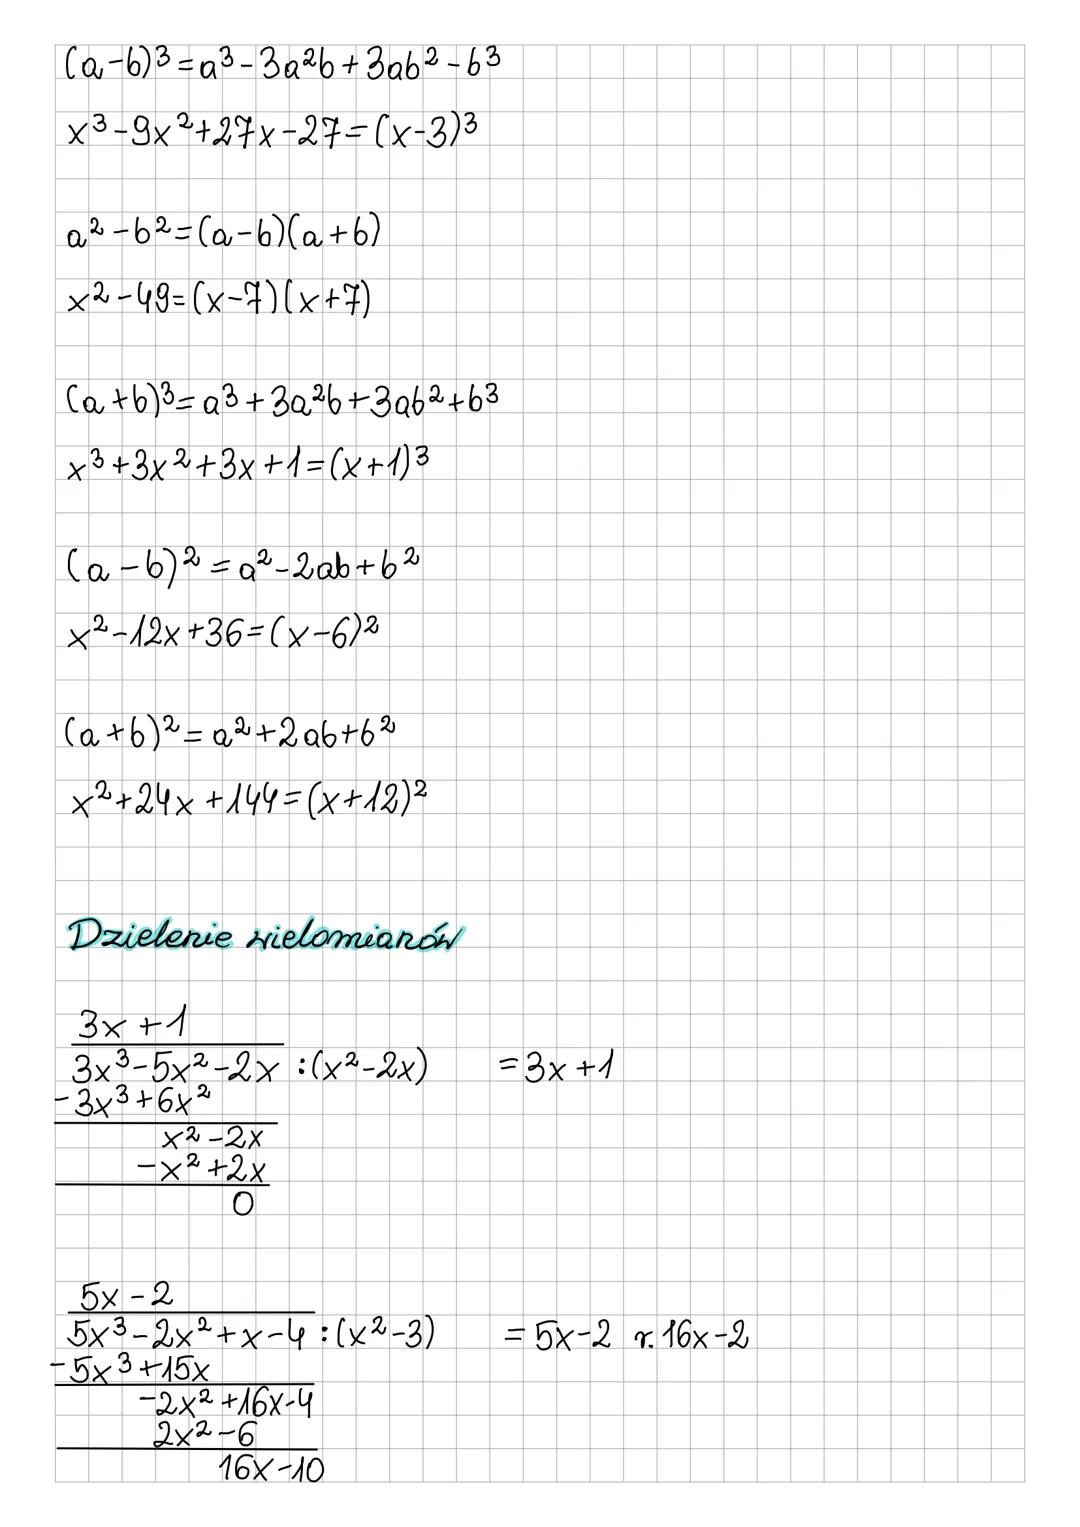 (a-b)³=a³-3a²b+3ab²-b³
x³-9x²+27x-27=(x-3)³
a²-b²=(a-b)(a+b)
x²-49=(x-7)(x+7)
(a+b)³=a³+3a²b+3ab²+b³
x³+3x²+3x+1=(x+1)³
(a-b)²=a²-2ab+b²
x²-12x+36=(x-6)²
(a+b)²=a²+2ab+b²
x²+24x+144=(x+12)²
Dzielenie wielomianów
3x+1
3x³-5x²-2x :(x²-2x) =3x+1
-3x³+6x²
x²-2x
-x²+2x
0
5x-2
5x³-2x²+x-4 :(x²-3) =5x-2 r. 16x-2
-5x³+15x
-2x²+16x-4
2x²-6
16x-10